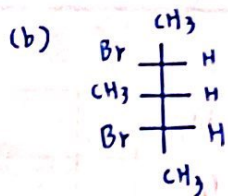 (b)
CH3
Br H
CH3 H
Br H
CH3